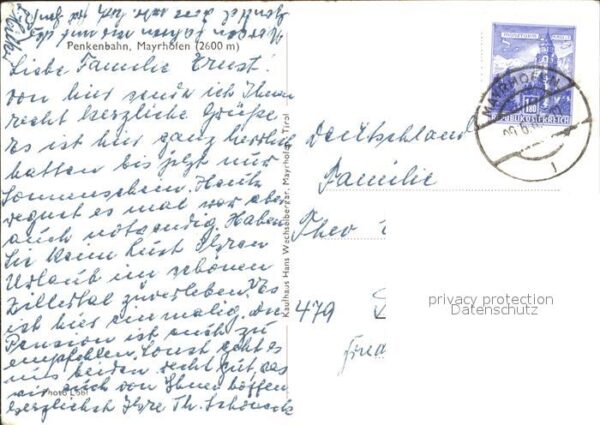 Penkenbahn, Mayrhofen (2600 m)
Liebe Familie Ernst!
von hier sende ich Ihnen
recht herzliche Grüße
es ist hier ganz herrlich
hatten bis jetzt nur
Sonnenschein. Heute
regnet es mal war aber
auch notwendig. Haben
Sie keine Lust Ihren
Urlaub im schönen
Zillertal zuverleben? Es
ist hier einmalig. Die
Pension ist auch zu
empfehlen. Sonst geht es
uns beiden recht gut, das
wir auch von Ihnen hoffen
herzlichst Ihre Th.
Photo
Kaufhaus Hans Wechselberger, Mayrhofen, Tirol
REPUBLIK ÖSTERREICH
MAYRHOFEN
Deutschland
Familie
Theo
479
privacy protection
Datenschutz